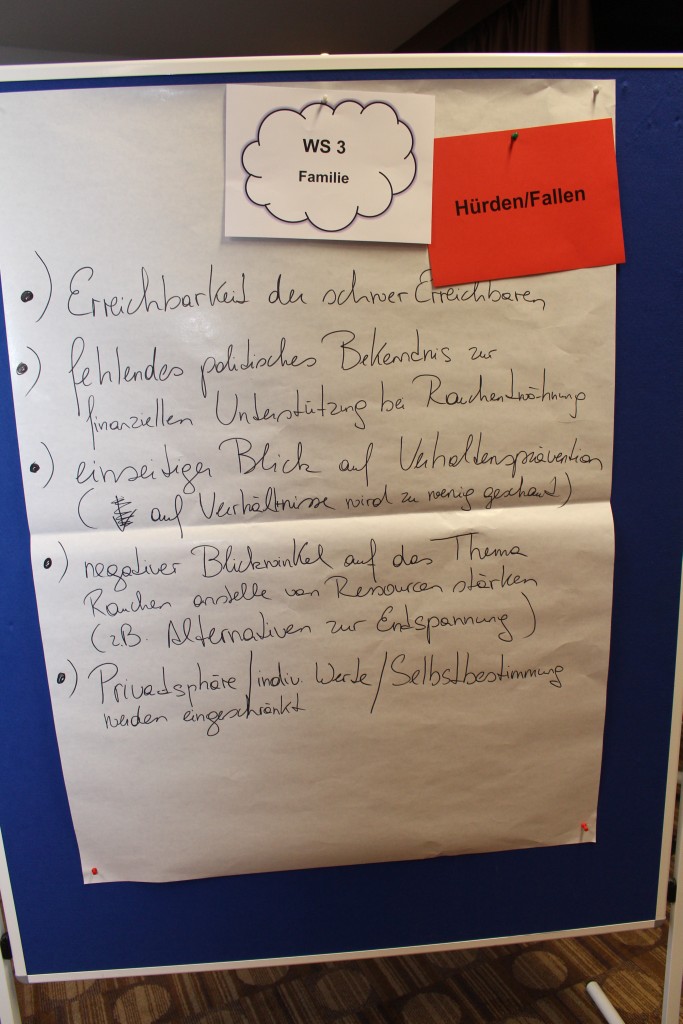 WS 3
Familie
Hürden/Fallen
•) Erreichbarkeit der schwer Erreichbaren
•) fehlendes politisches Bekenntnis zur
finanziellen Unterstützung bei Rauchentwöhnung
•) einseitiger Blick auf Verhaltensprävention
( auf Verhältnisse wird zu wenig geschaut)
•) negativer Blickwinkel auf das Thema
Rauchen anstelle von Ressourcen stärken
(z.B. Alternativen zur Entspannung)
•) Privatsphäre/indiv. Werte/Selbstbestimmung
werden eingeschränkt